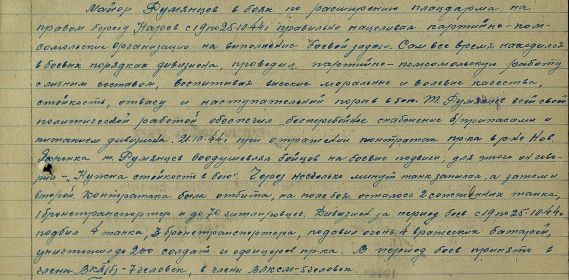 Майор Румянцев в боях по расширению плацдарма на
правом берегу Нарев с 19 по 25.10.44г правильно нацеливал партийно-ком-
сомольские организации на выполнение боевой задачи. Сам все время находился
в боевых порядках дивизиона, проводил партийно-комсомольскую работу
с личным составом, воспитывая высокие моральные и волевые качества,
стойкость, отвагу и наступательный порыв в бою. Т. Румянцев всей своей
политической работой обеспечил бесперебойное снабжение боеприпасами и
питанием дивизиона. 21.10.44г при отражении контратак пр-ка в р-не Нов.
т. Румянцев воодушевлял бойцов на боевые подвиги, для этого он гово-
рил – "Нужна стойкость в бою". Через несколько минут танк запылал, а затем и
вторая контратака была отбита, на поле боя осталось 2 сожженных танка,
1 бронетранспортер и до 70 гитлеровцев. Дивизион за период боев с 19 по 25.10.44г
подбил 4 танка, 3 бронетранспортера, подавил огонь 4 вражеских батарей,
уничтожил до 200 солдат и офицеров пр-ка. В период боев принято в
члены ВКП(б) - 7 человек, в члены ВЛКСМ - 5 человек.